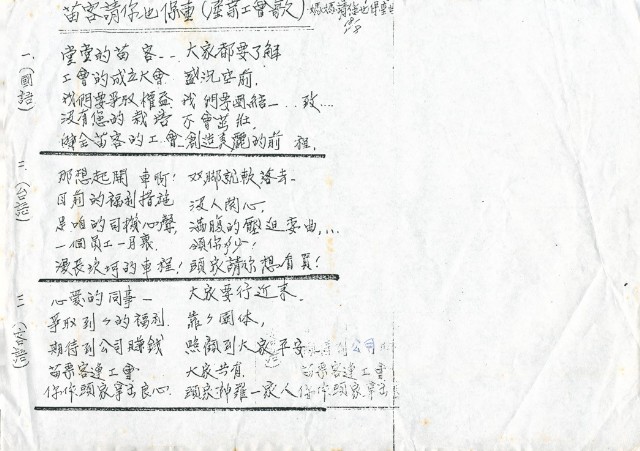 苗客請你也保重(產業工會歌) 媽媽請你也保重
一、(國語)
堂堂的苗客... 大家都要了解
工會的成立大會 盛況空前.
我們要爭取權益. 我們要團結一...致...
沒有您的栽培 不會茁壯.
苗客的工會 創造美麗的前程.
二、(台語)
那想起開車啊! 双腳就軟落去-
目前的福利措施 沒人関心.
是咱的司機心聲, 滿腹的壓迫委曲....
一個員工一月
漫長坎坷的車程! 頭家請你想看買!
三、
心愛的同事- 大家要行近來.
爭取到的福利. 靠団体,
期待到公司賺錢 照顧到大家平安
苗栗客運工會 大家共有
你作頭家拿出良心. 頭家一家人